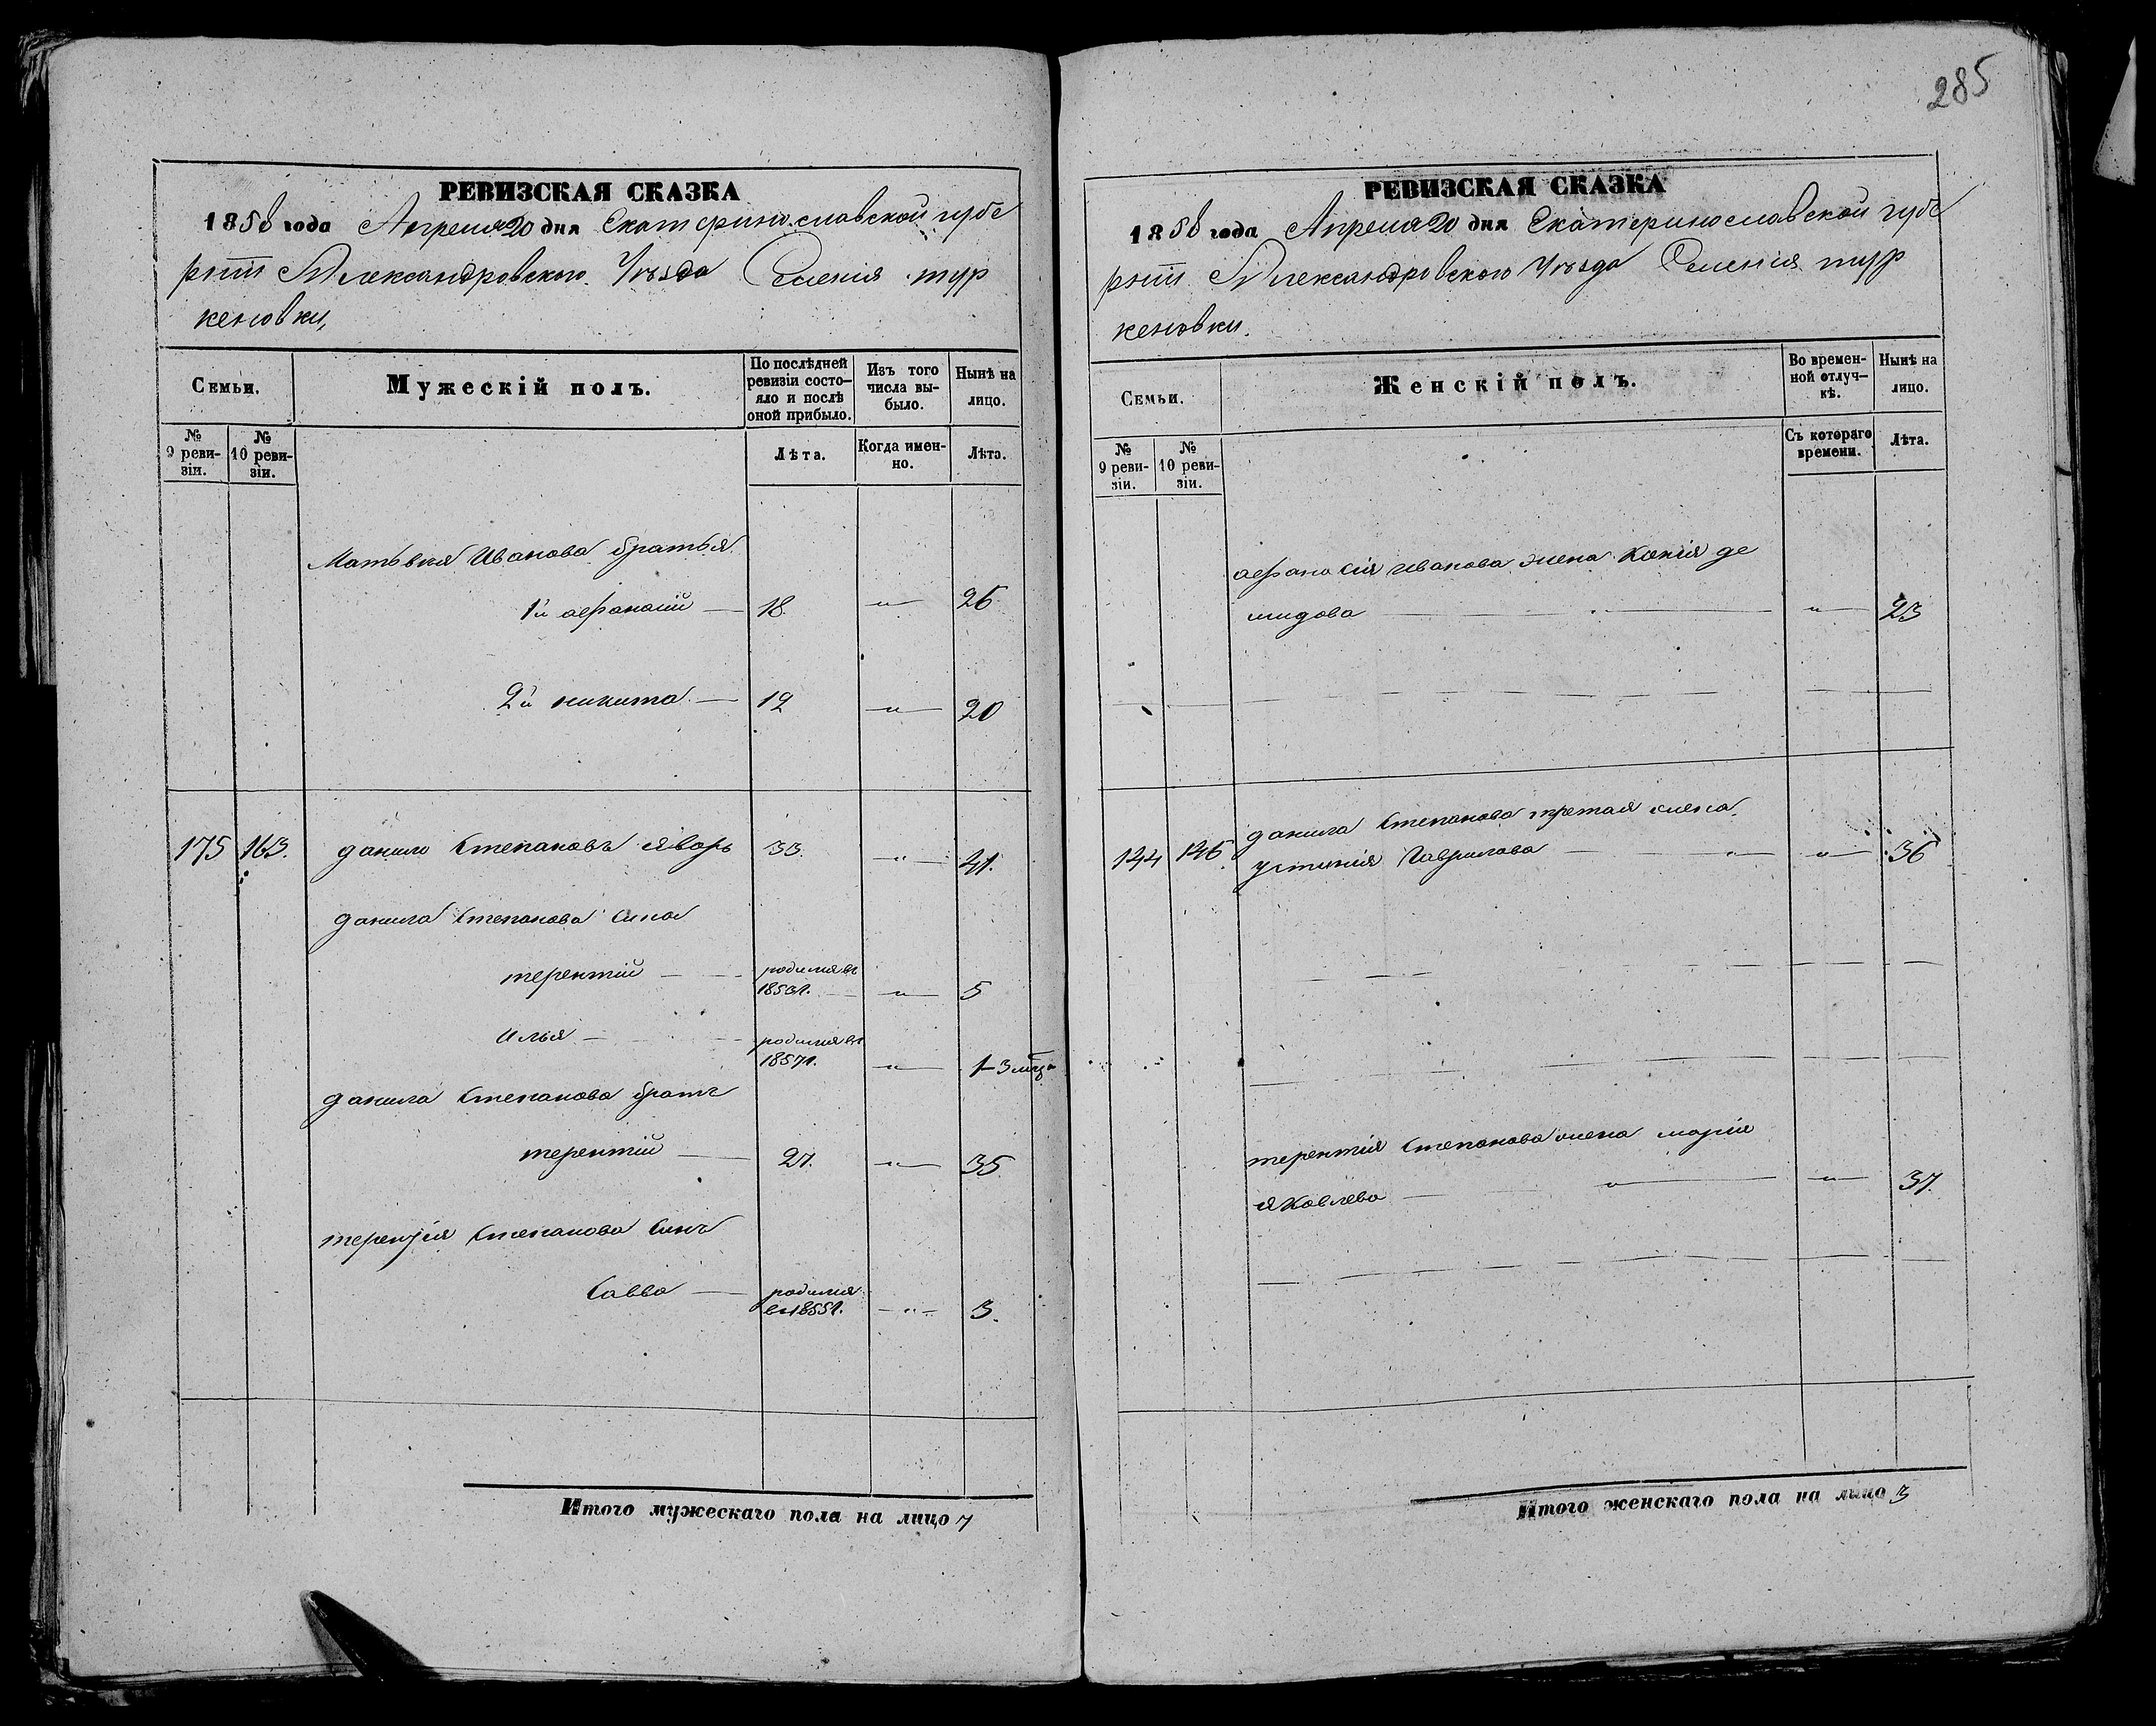 285
РЕВИЗСКАЯ СКАЗКА
1858 года Апреля 20 дня Екатеринославской губе
рніи Александровского Уѣзда Селенія тур
кеновки,
Семьи.
Мужескій полъ.
По послѣдней ревизіи состо-
яло и послѣ оной прибыло.
Изъ того числа вы-
было.
Нынѣ на лицо.
№ 9 реви-
зіи.
№ 10 реви-
зіи.
Лѣта.
Когда имен-
но.
Лѣта.
Матьвея Иванова братья
1й афанасій — 18. — „ — 26
2й никита — 12 — „ — 20
175 163. данило Степановъ яворъ 33. — „ — 41.
данила Степанова Сина
терентій — родился въ
185 г. — „ — 5
илья — родился въ
1857г. — „ — 1-3 мца
данила Степанова братъ
терентій — 27. — „ — 35
терентія Степанова Синъ
Савва — родился
въ 1855г. — „ — 3.
Итого мужескаго пола на лицо 7
РЕВИЗСКАЯ СКАЗКА
1858 года Апреля 20 дня Екатеринославской губе
рніи Александровского Уѣзда Селенія тур
кеновки.
Семьи.
Женскій полъ.
Во времен-
ной отлуч-
кѣ.
Нынѣ на лицо.
№ 9 реви-
зіи.
№ 10 реви-
зіи.
Съ котораго времени.
Лѣта.
афанасія иванова жена Ксенія де
мидова — „ — „ — 23
данила Степанова третая жена
144 146. устинія Гаврилова — „ — „ — 36
терентія Степанова жена марія
яковлева — „ — „ — 37.
Итого женскаго пола на лицо 3